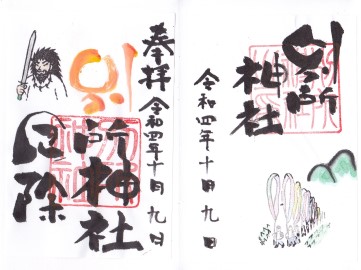 別所
神社
令和四年十月九日
奉拝 令和四年十月九日
別
所神社
厄除